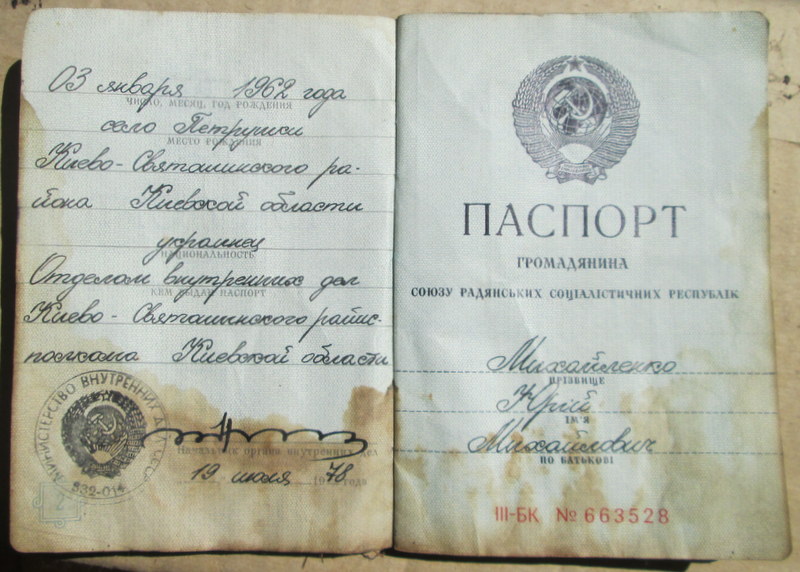 03 января 1962 года
ЧИСЛО, МЕСЯЦ, ГОД РОЖДЕНИЯ
село Петрушки
МЕСТО РОЖДЕНИЯ
Киево-Святошинского ра-
йона Киевской области
украинец
НАЦИОНАЛЬНОСТЬ
Отделом внутренних дел
КЕМ ВЫДАН ПАСПОРТ
Киево-Святошинского райис-
полкома Киевской области
МИНИСТЕРСТВО ВНУТРЕННИХ ДЕЛ СССР
832-014
Начальник органа внутренних дел
19 июля 1978 года
ПАСПОРТ
ГРОМАДЯНИНА
СОЮЗУ РАДЯНСЬКИХ СОЦІАЛІСТИЧНИХ РЕСПУБЛІК
Михайленко
ПРІЗВИЩЕ
Юрій
ІМ'Я
Михайлович
ПО БАТЬКОВІ
III-БК № 663528